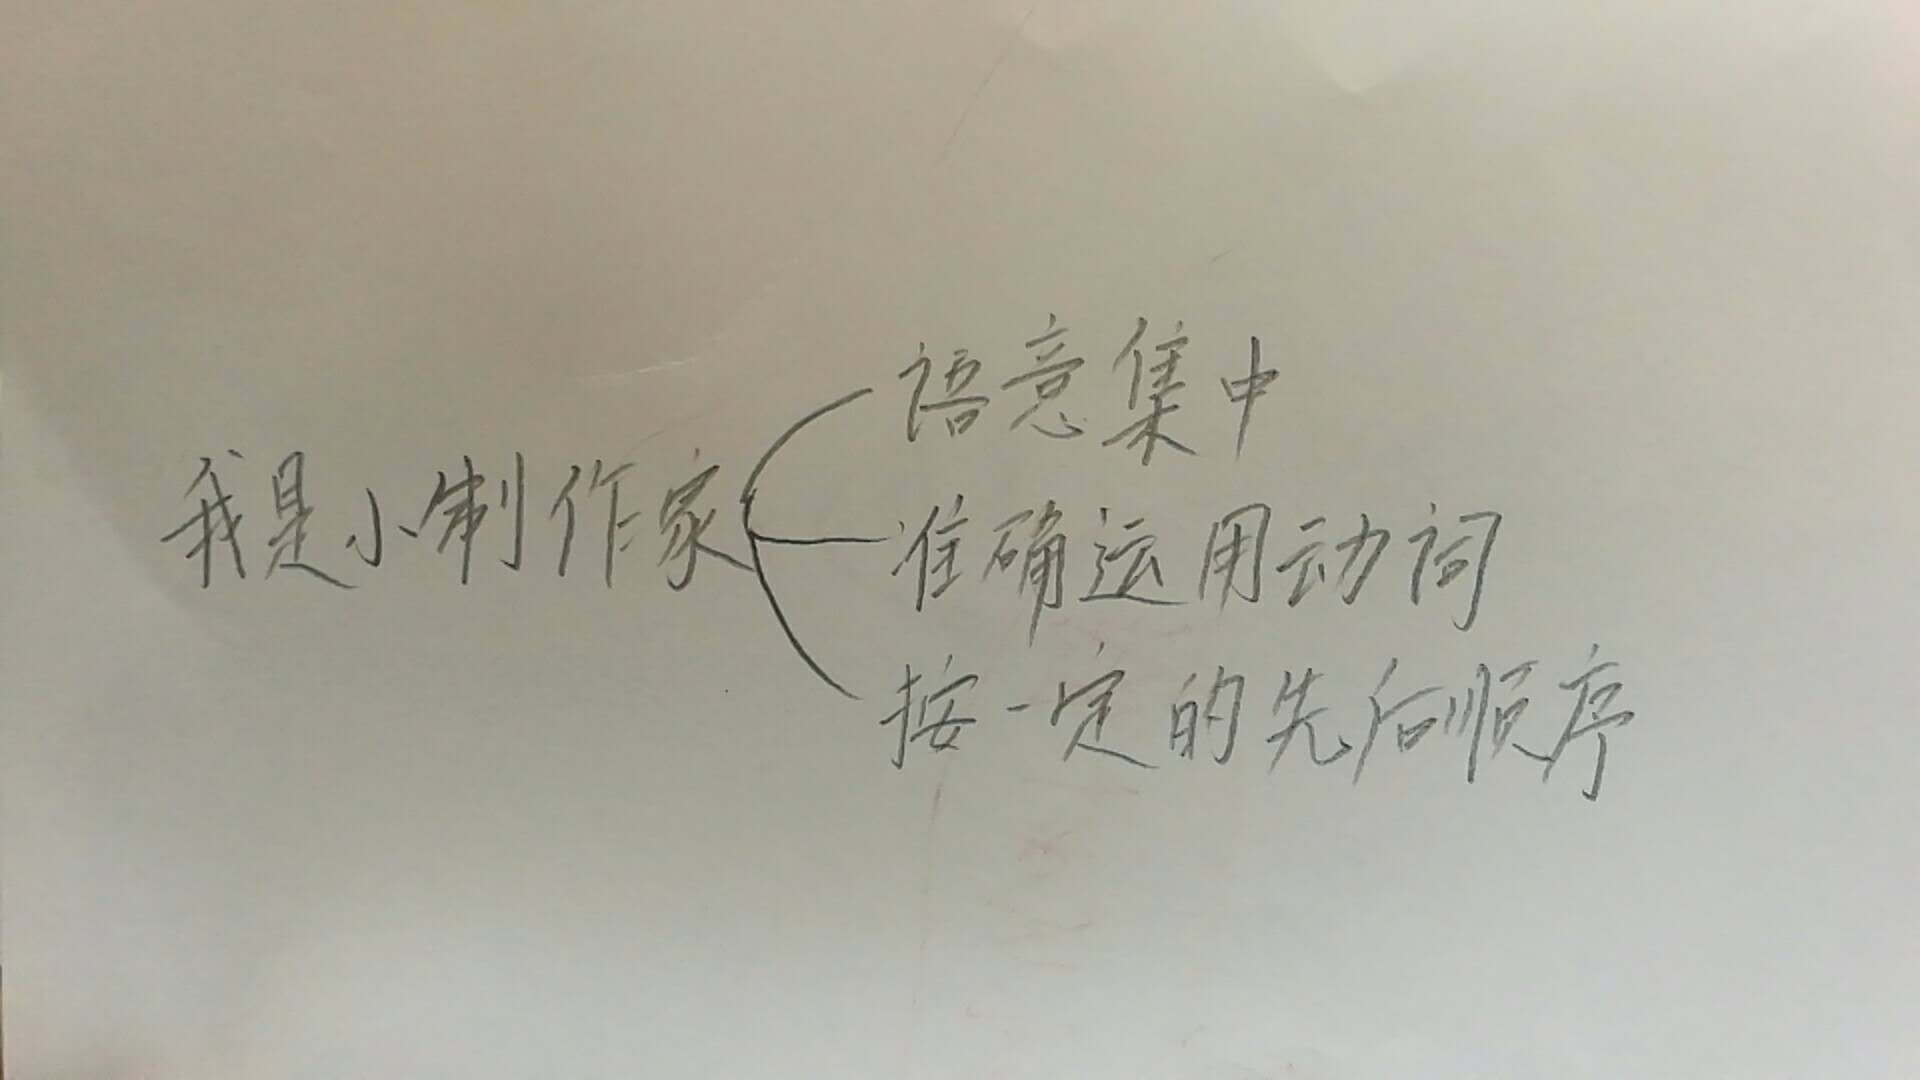 我是小制作家
语意集中
准确运用动词
按一定的先后顺序